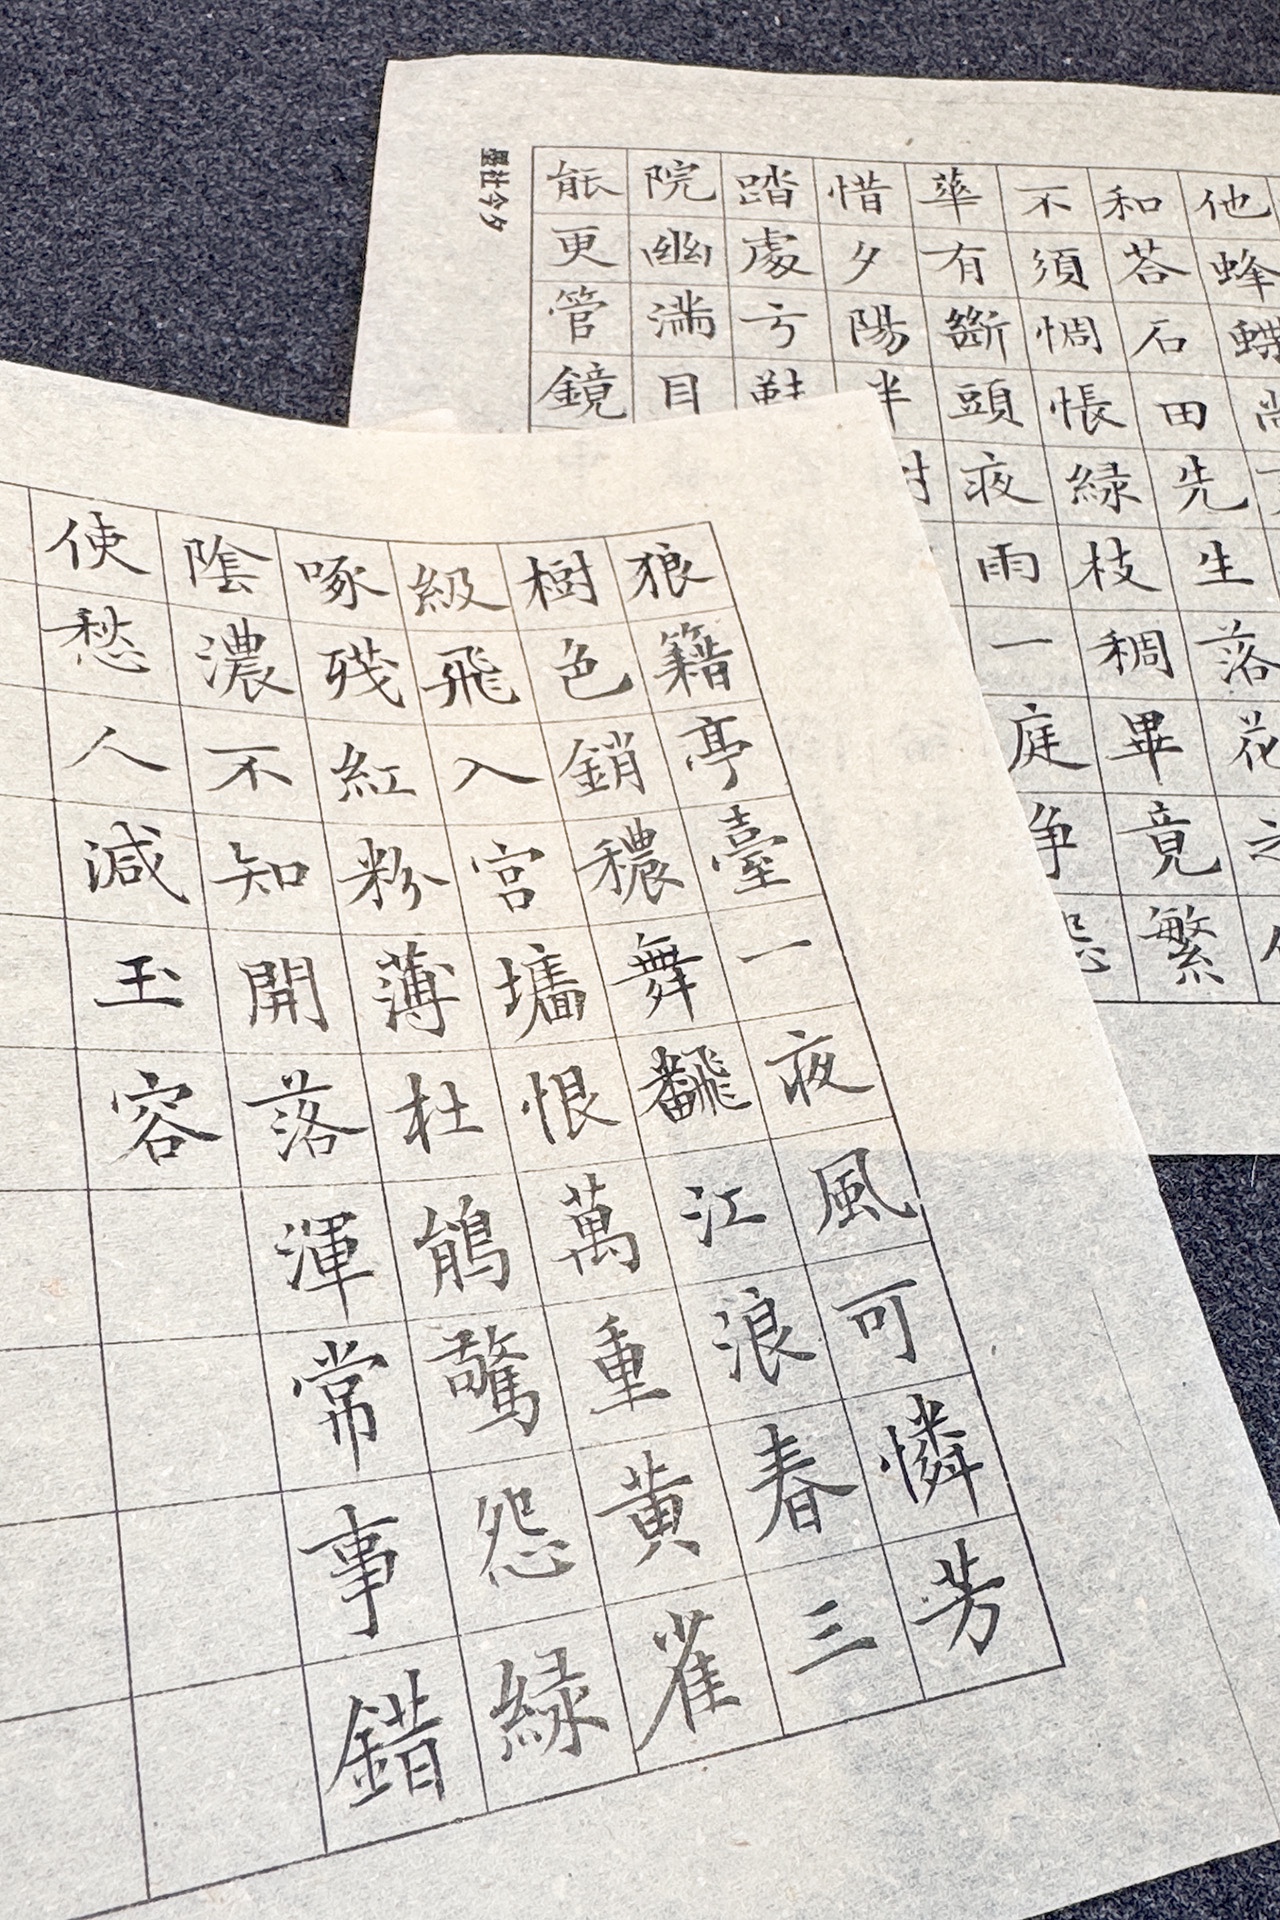 他蜂蝶
和荅石田先生落花之
不須惆悵綠枝稠畢竟繁
華有斷頭夜雨一庭爭怨
惜夕陽半樹
踏處亏鞋
院幽滿目
䏻更管鏡
狼籍亭臺一夜風可憐芳
樹色銷穠舞飜江浪春三
級飛入宮墻恨萬重黃雀
啄殘紅粉薄杜鵑驚怨綠
陰濃不知開落渾常事錯
使愁人減玉容